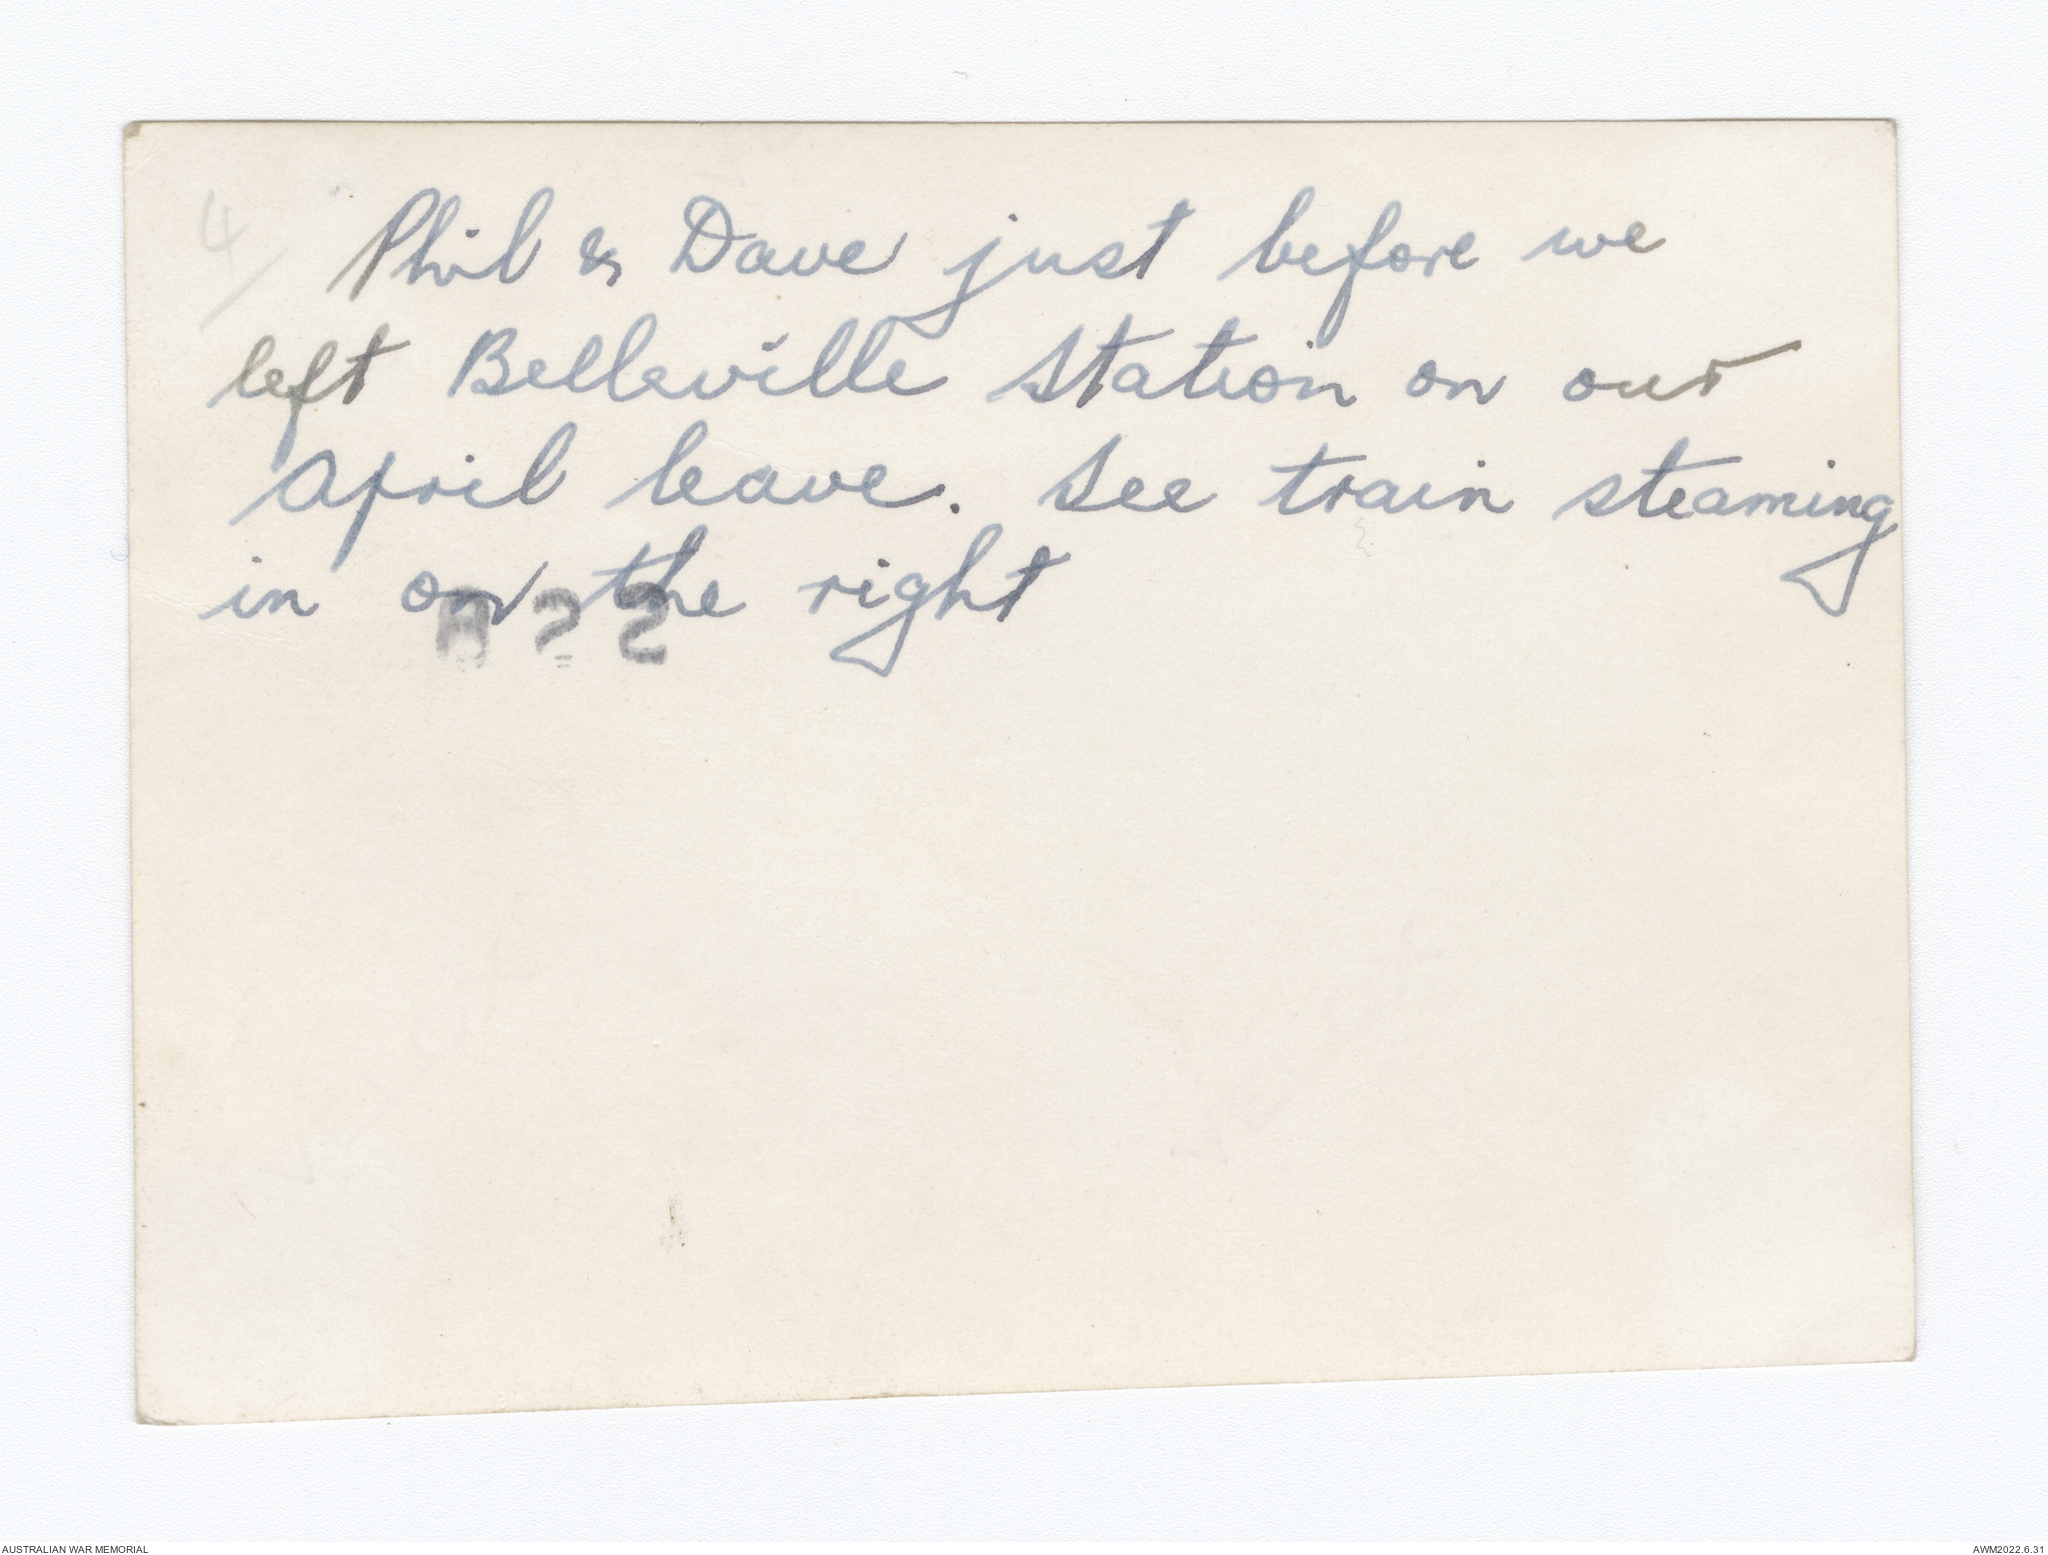 4/
Phil & Dave just before we
left Belleville Station on our
April leave. See train steaming
in on the right
22
AUSTRALIAN WAR MEMORIAL
AWM2022.6.31